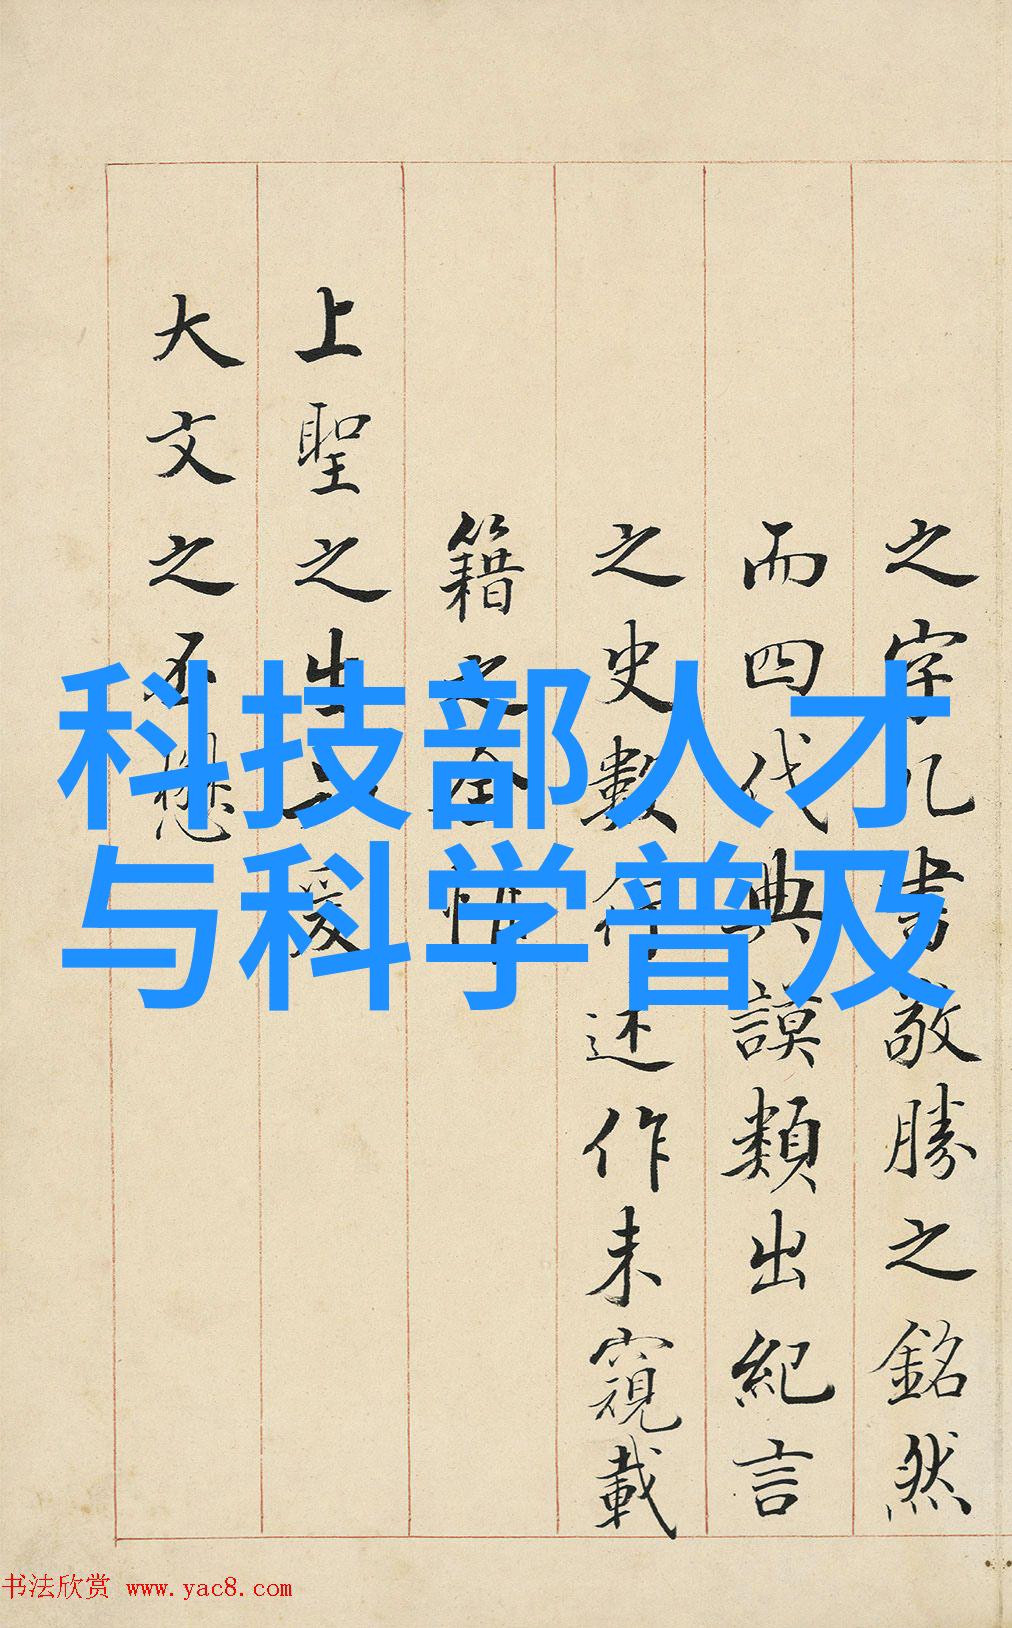 科技部人才
与科学普及
之字凡書敬勝之銘然
而四代典謨類出紀言
之史數 述作未窺載
籍之全惟
上聖之生 爰
大文之丕
书法欣赏 www.yac8.com